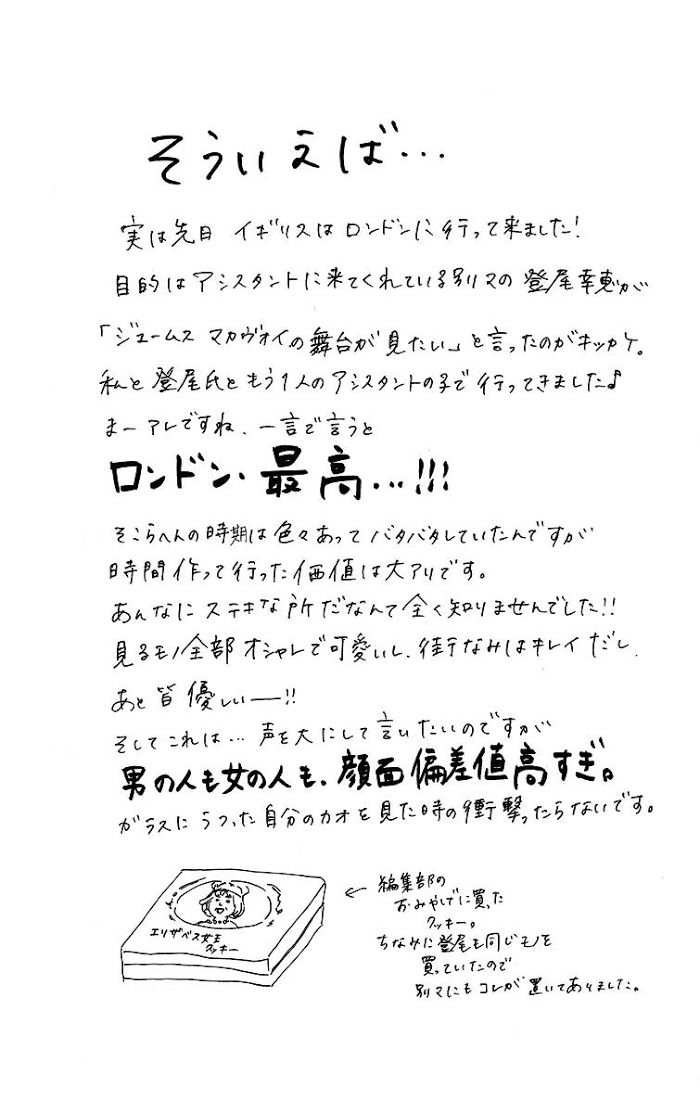 そういえば…
実は先日 イギリスは ロンドンに行って来ました!
目的はアシスタントに来てくれている別マの 登尾幸恵が
「ジェームス マカヴォイの舞台が見たい」と言ったのがキッカケ。
私と登尾氏ともう1人のアシスタントの子で行ってきました♪
まーアレですね、一言で言うと
ロンドン・最高…!!!
そこらへんの時期は色々あってバタバタしていたんですが
時間作って行った価値は大アリです。
あんなにステキな所だなんて全く知りませんでした!!
見るモノ全部オシャレで可愛いし、街なみはキレイだし
あと皆優しいー!!
そしてこれは…声を大にして言いたいのですが
男の人も女の人も、顔面偏差値高すぎ。
ガラスにうつった自分のカオを見た時の衝撃ったらないです。
エリザベス女王
クッキー
← 編集部の
おみやげに買った
クッキー。
ちなみに登尾も同じモノを
買っていたので
別マにもコレが置いてありました。